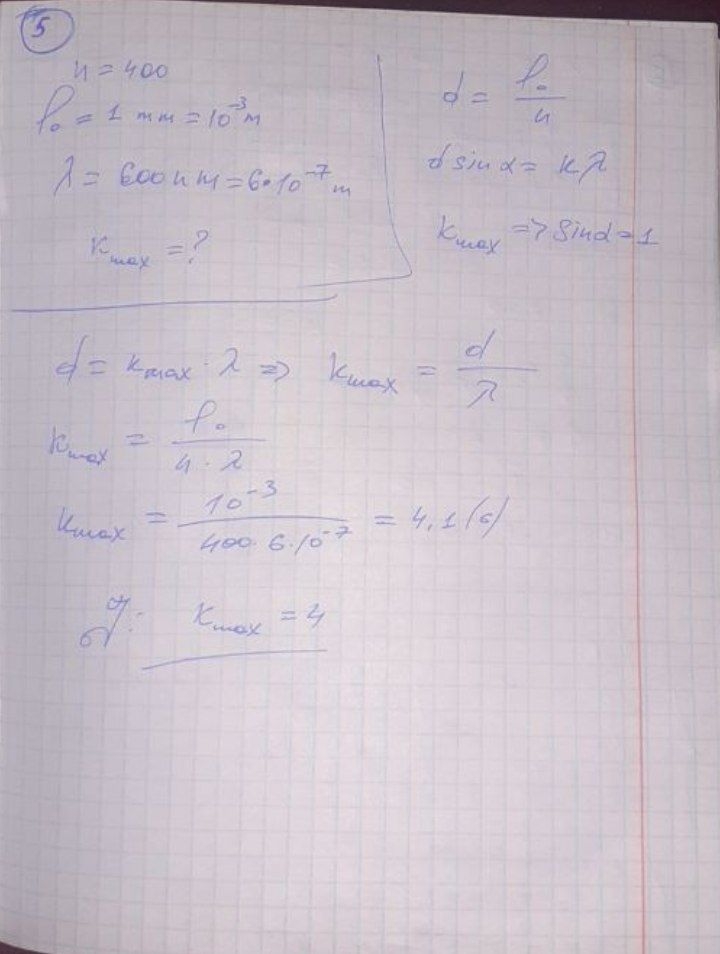 5
n = 400
l₀ = 1 mm = 10⁻³ m
λ = 600 nm = 6·10⁻⁷ m
k_max = ?
d = l₀ / n
d sin α = kλ
k_max => sin α = 1
d = k_max · λ => k_max = d / λ
k_max = l₀ / (n · λ)
k_max = 10⁻³ / (400 · 6 · 10⁻⁷) = 4,1(6)
k_max = 4